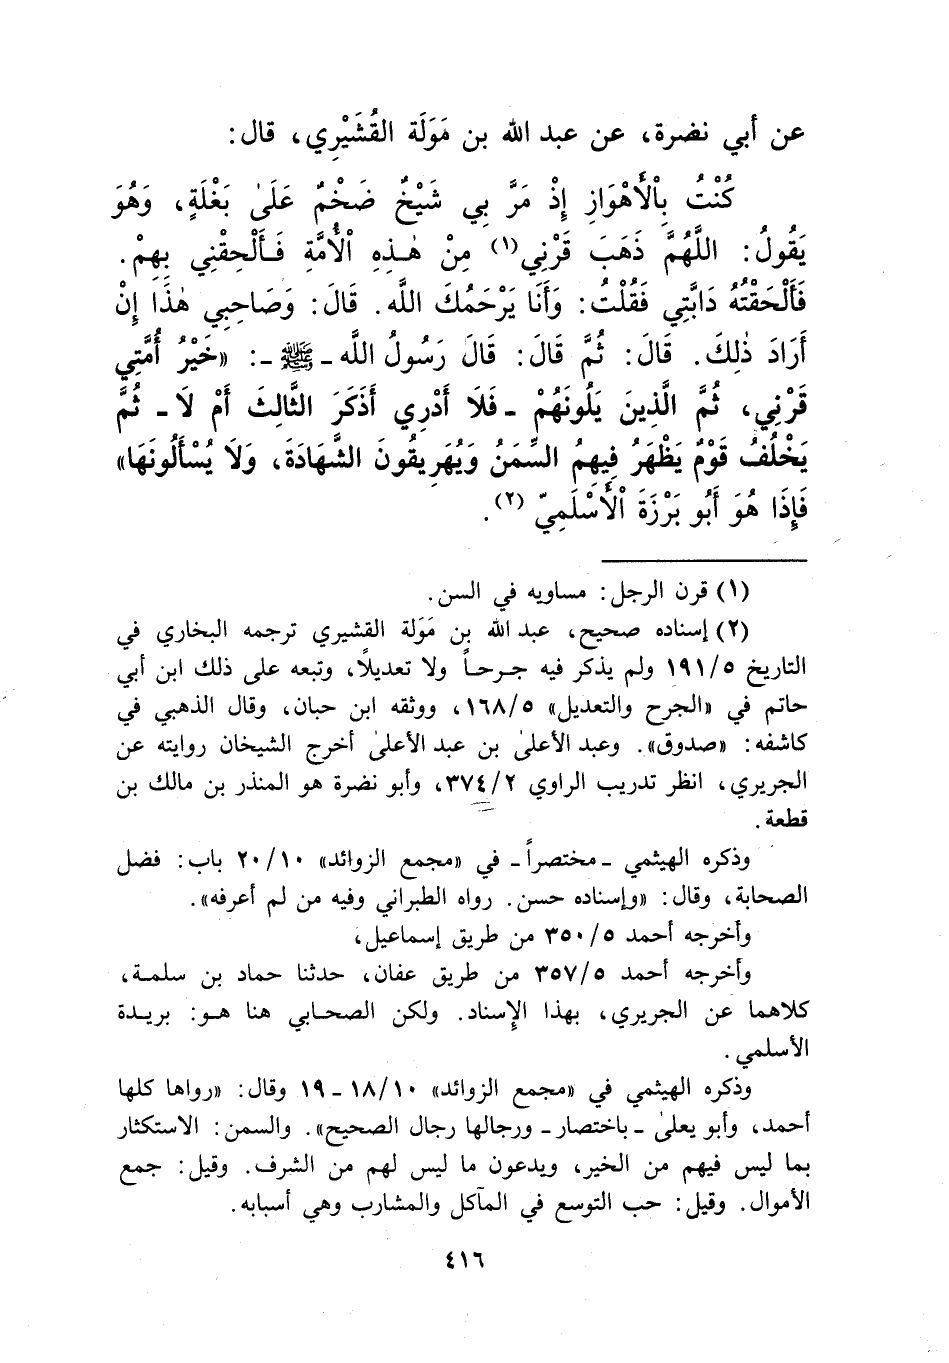 عن أبي نضرة، عن عبد الله بن مَوَلَة القُشَيْرِي، قال:
كُنْتُ بِالْأَهْوَازِ إِذْ مَرَّ بِي شَيْخٌ ضَخْمٌ عَلَىٰ بَغْلَةٍ، وَهُوَ
يَقُولُ: اللَّهُمَّ ذَهَبَ قَرْنِي (١) مِنْ هٰذِهِ الْأُمَّةِ فَأَلْحِقْنِي بِهِمْ.
فَأَلْحَقْتُهُ دَابَّتِي فَقُلْتُ: وَأَنَا يَرْحَمُكَ اللَّه. قَالَ: وَصَاحِبِي هٰذَا إِنْ
أَرَادَ ذٰلِكَ. قَالَ: ثُمَّ قَالَ: قَالَ رَسُولُ اللَّه ـ ﷺ ـ: «خَيْرُ أُمَّتِي
قَرْنِي، ثُمَّ الَّذِينَ يَلُونَهُمْ ـ فَلَا أَدْرِي أَذَكَرَ الثَّالِثَ أَمْ لَا ـ ثُمَّ
يَخْلُفُ قَوْمٌ يَظْهَرُ فِيهِمُ السِّمَنُ وَيُهَرِيقُونَ الشَّهَادَةَ، وَلَا يُسْأَلُونَهَا»
فَإِذَا هُوَ أَبُو بَرْزَةَ الْأَسْلَمِيّ (٢).
(١) قرن الرجل: مساويه في السن.
(٢) إسناده صحيح، عبد الله بن مَوَلة القشيري ترجمه البخاري في
التاريخ ١٩١/٥ ولم يذكر فيه جرحاً ولا تعديلاً، وتبعه على ذلك ابن أبي
حاتم في «الجرح والتعديل» ١٦٨/٥، ووثقه ابن حبان، وقال الذهبي في
كاشفه: «صدوق». وعبد الأعلىٰ بن عبد الأعلىٰ أخرج الشيخان روايته عن
الجريري، انظر تدريب الراوي ٣٧٤/٢، وأبو نضرة هو المنذر بن مالك بن
قطعة.
وذكره الهيثمي ـ مختصراً ـ في «مجمع الزوائد» ٢٠/١٠ باب: فضل
الصحابة، وقال: «وإسناده حسن. رواه الطبراني وفيه من لم أعرفه».
وأخرجه أحمد ٣٥٠/٥ من طريق إسماعيل،
وأخرجه أحمد ٣٥٧/٥ من طريق عفان، حدثنا حماد بن سلمة،
كلاهما عن الجريري، بهذا الإسناد. ولكن الصحابي هنا هو: بريدة
الأسلمي.
وذكره الهيثمي في «مجمع الزوائد» ١٨/١٠ ـ ١٩ وقال: «رواها كلها
أحمد، وأبو يعلىٰ ـ باختصار ـ ورجالها رجال الصحيح». والسمن: الاستكثار
بما ليس فيهم من الخير، ويدعون ما ليس لهم من الشرف. وقيل: جمع
الأموال. وقيل: حب التوسع في المآكل والمشارب وهي أسبابه.
٤١٦